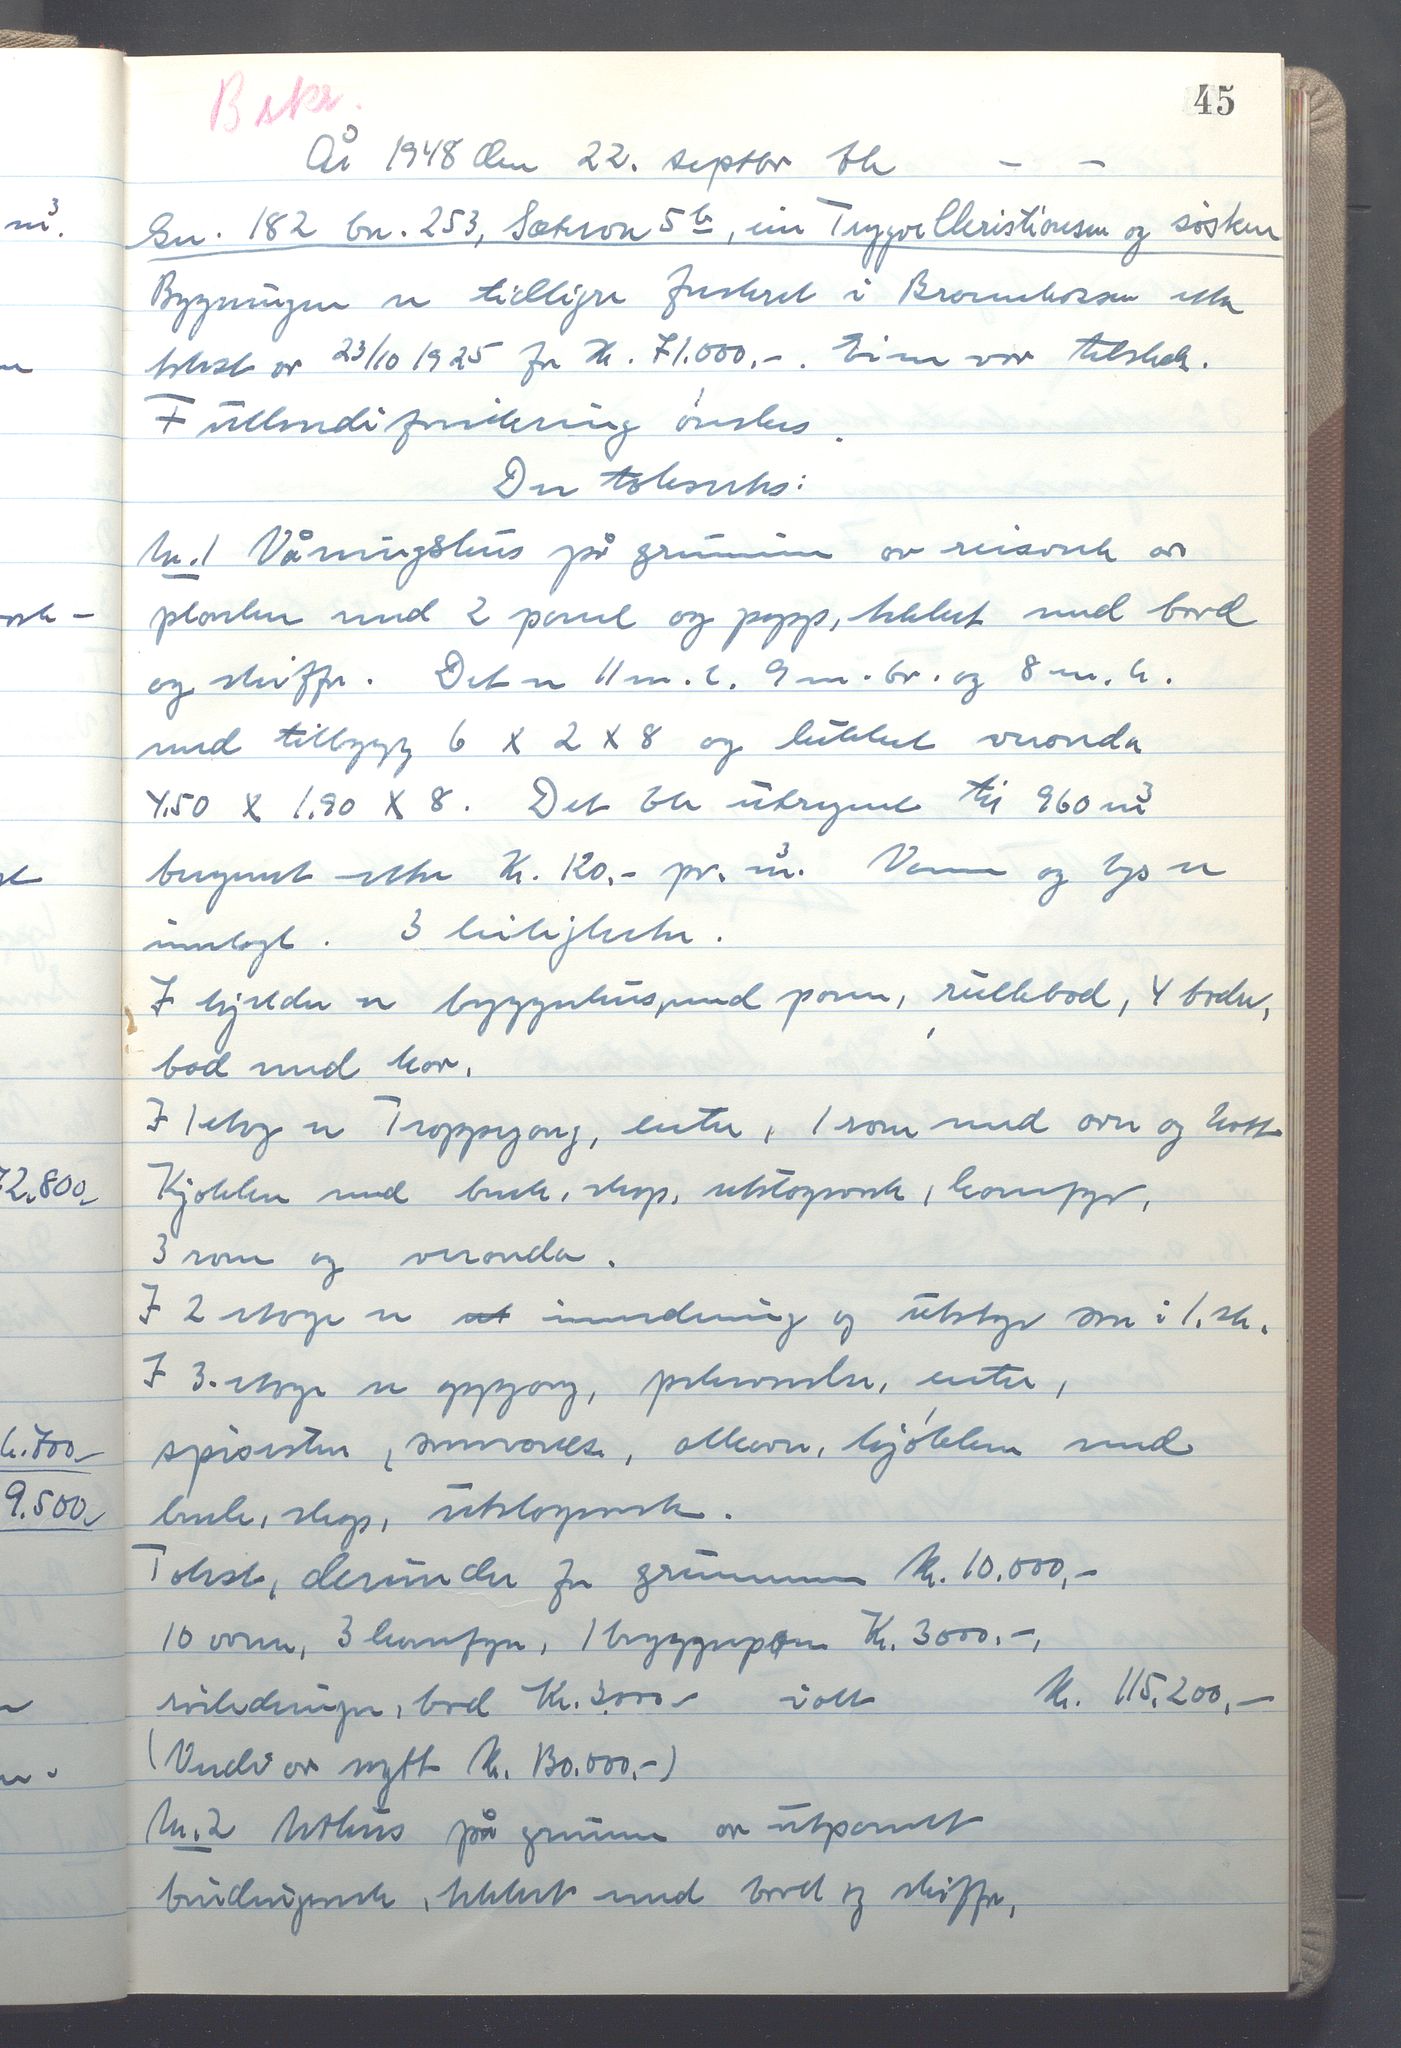 B skr.
45
År 1948 den 22. septbr ble — —
Gn. 182 bn. 253, Sætran 5b, eier Trygve Christiansen og søsken
Bygningen er tidligere forsikret i Brannkassen etter
takst av 23/10 1925 for Kr. 71.000,-. Eier var tilstede.
Fullverdiforsikring ønskes.
Der takseredes:
Nr. 1 Våningshus på grunnmur av reisverk av
planker med 2 panel og papp, tekket med bord
og skiffer. Det er 11 m. l. 9 m. br. og 8 m. h.
med tilbygg 6 x 2 x 8 og lukket veranda
4,50 x 1,90 x 8. Det ble utregnet til 960 m³
beregnet etter Kr. 120,- pr. m³. Vann og lys er
innlagt. 3 leiligheter.
I kjelder er byggerhus, med panne, rullebod, 4 boder,
bod med kar.
I 1 etag er Trappegang, entre, 1 rom med ovn og kott
Kjøkken med benk, skap, utslagsvask, komfyr,
3 rom og veranda.
I 2 etage er innredning og utstyr som i 1. et.
I 3. etage er oppgang,
entre,
spisestue, soverom, alkove, kjøkken med
benk, skap, utslagsvask.
Takst, derunder for grunnmur Kr. 10.000,-
10 ovner, 3 komfyrer, 1 bryggepanne Kr. 3000.-,
rørledninger, bad Kr. 3.000- i alt Kr. 115.200,-
(Verdi av nytt Kr. 130.000,-)
Nr. 2 Uthus på grunnmur av utpanelt
bindingsverk, tekket med bord og skiffer,
m³.
72.800,-
9.500,-